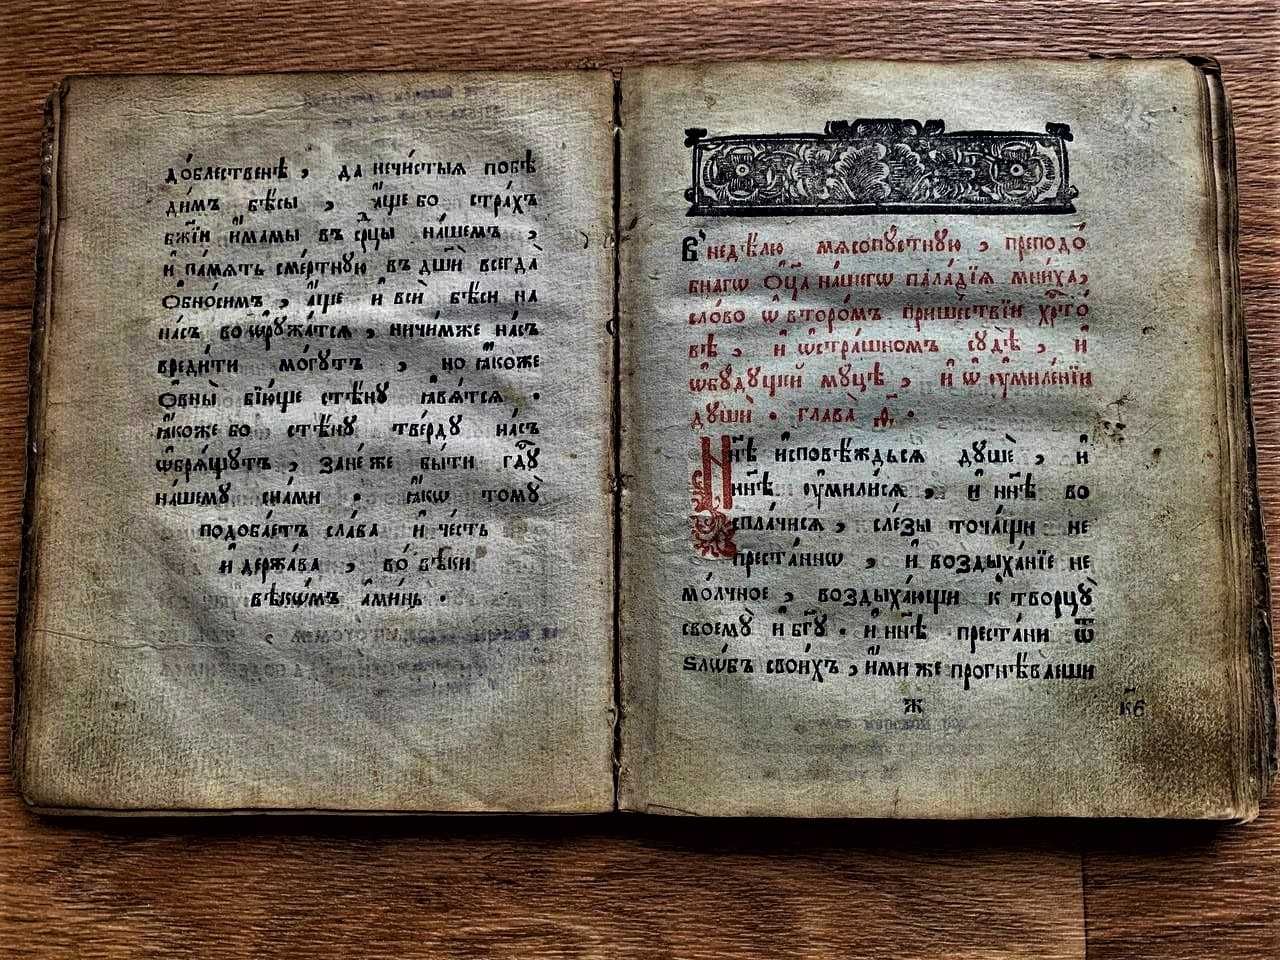 до́блественѣ , да нечи́стыѧ побѣ
ди́мъ бѣ́сы , а҆́ще бо стра́хъ
бж҃їи и҆́мамы въ ср҃дцы на́шемъ ,
и҆ па́мѧть сме́ртную въ дш҃и всегда̀
ѡ҆бно́симъ , а҆́ще и҆ всѝ бѣ́си на
на́съ воѡрꙋжа́тсѧ , ничи́мже на́съ
вреди́ти мо́гутъ , но ꙗ҆́коже
ѻ҆вны̀ бїю́ще стѣ́нꙋ ꙗ҆вѧ́тсѧ .
ꙗ҆́коже бо стѣ́нꙋ тве́рдꙋ на́съ
ѡ҆брѧ́щутъ , зане́же бы́ти гдⷭ҇ꙋ
на́шемꙋ сна́ми . ꙗ҆́кѡ томꙋ̀
подоба́етъ сла́ва и҆ че́сть
и҆ держа́ва , во́ вѣки
вѣкѡ́мъ а҆ми́нь .
В̾ недѣ́лю мѧсопꙋ́стнꙋю , преподо́
бнагѡ Ѻц҃а̀ на́шегѡ палла́дїѧ мни́ха ,
сло́во ѡ҆ второ́мъ прише́ствїи хрⷭ҇то́
вѣ , и҆ ѡ҆стра́шномъ сꙋдѣ̀ , и҆
ѡ҆бꙋ́дꙋщей мꙋ́цѣ , и҆ ѡ҆ ᲂу҆миле́нїи
дꙋшѝ . глава̀ д҃ .
Нн҃ѣ и҆сповѣ́ждьсѧ дꙋшѐ , и҆
нн҃ѣ ᲂу҆мили́сѧ , и҆ нн҃ѣ во
спла́чисѧ , сле́зы точа́щи не
преста́ннѡ , и҆ воздыха́нїе не
мо́лчное , воздыха́ющи к̾ творцꙋ̀
своемꙋ̀ и҆ бг҃ꙋ . и҆ нн҃ѣ преста́ни ѿ
ѕлѡ́бъ свои́хъ , и҆́миже прогнѣ́ваеши
ж
к҃є